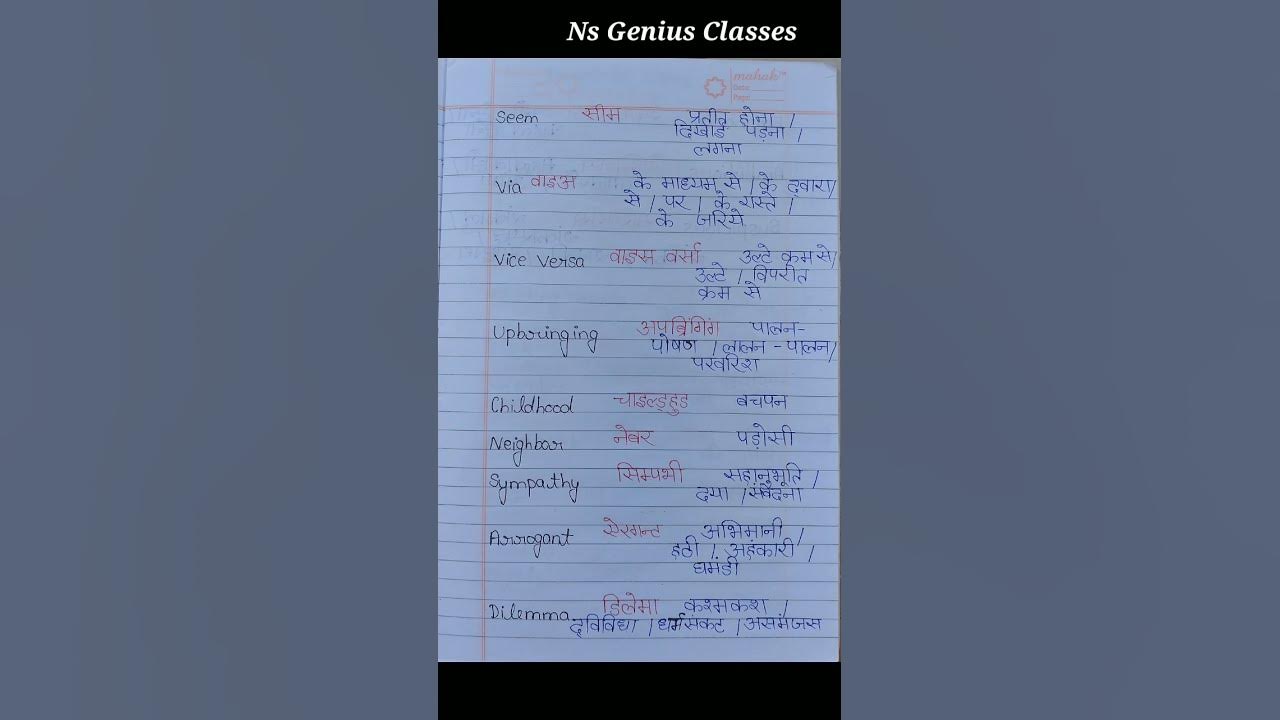 Ns Genius Classes
mahak
Date
Page
Seem सीम प्रतीत होना /
दिखाई पड़ना /
लगना
Via वाइअ के माध्यम से / के द्वारा/
से / पर / के रास्ते /
के जरिये
Vice Versa वाइस वर्सा उल्टे क्रम से/
उल्टे / विपरीत
क्रम से
Upbringing अपब्रिंगिंग पालन-
पोषण / लालन - पालन/
परवरिश
Childhood चाइल्डहुड बचपन
Neighbor नेबर पड़ोसी
Sympathy सिम्पथी सहानुभूति /
दया / संवेदना
Arrogant ऐरगन्ट अभिमानी /
हठी / अहंकारी /
घमंडी
Dilemma डिलेमा कश्मकश /
द्विविधा / धर्मसंकट / असमंजस